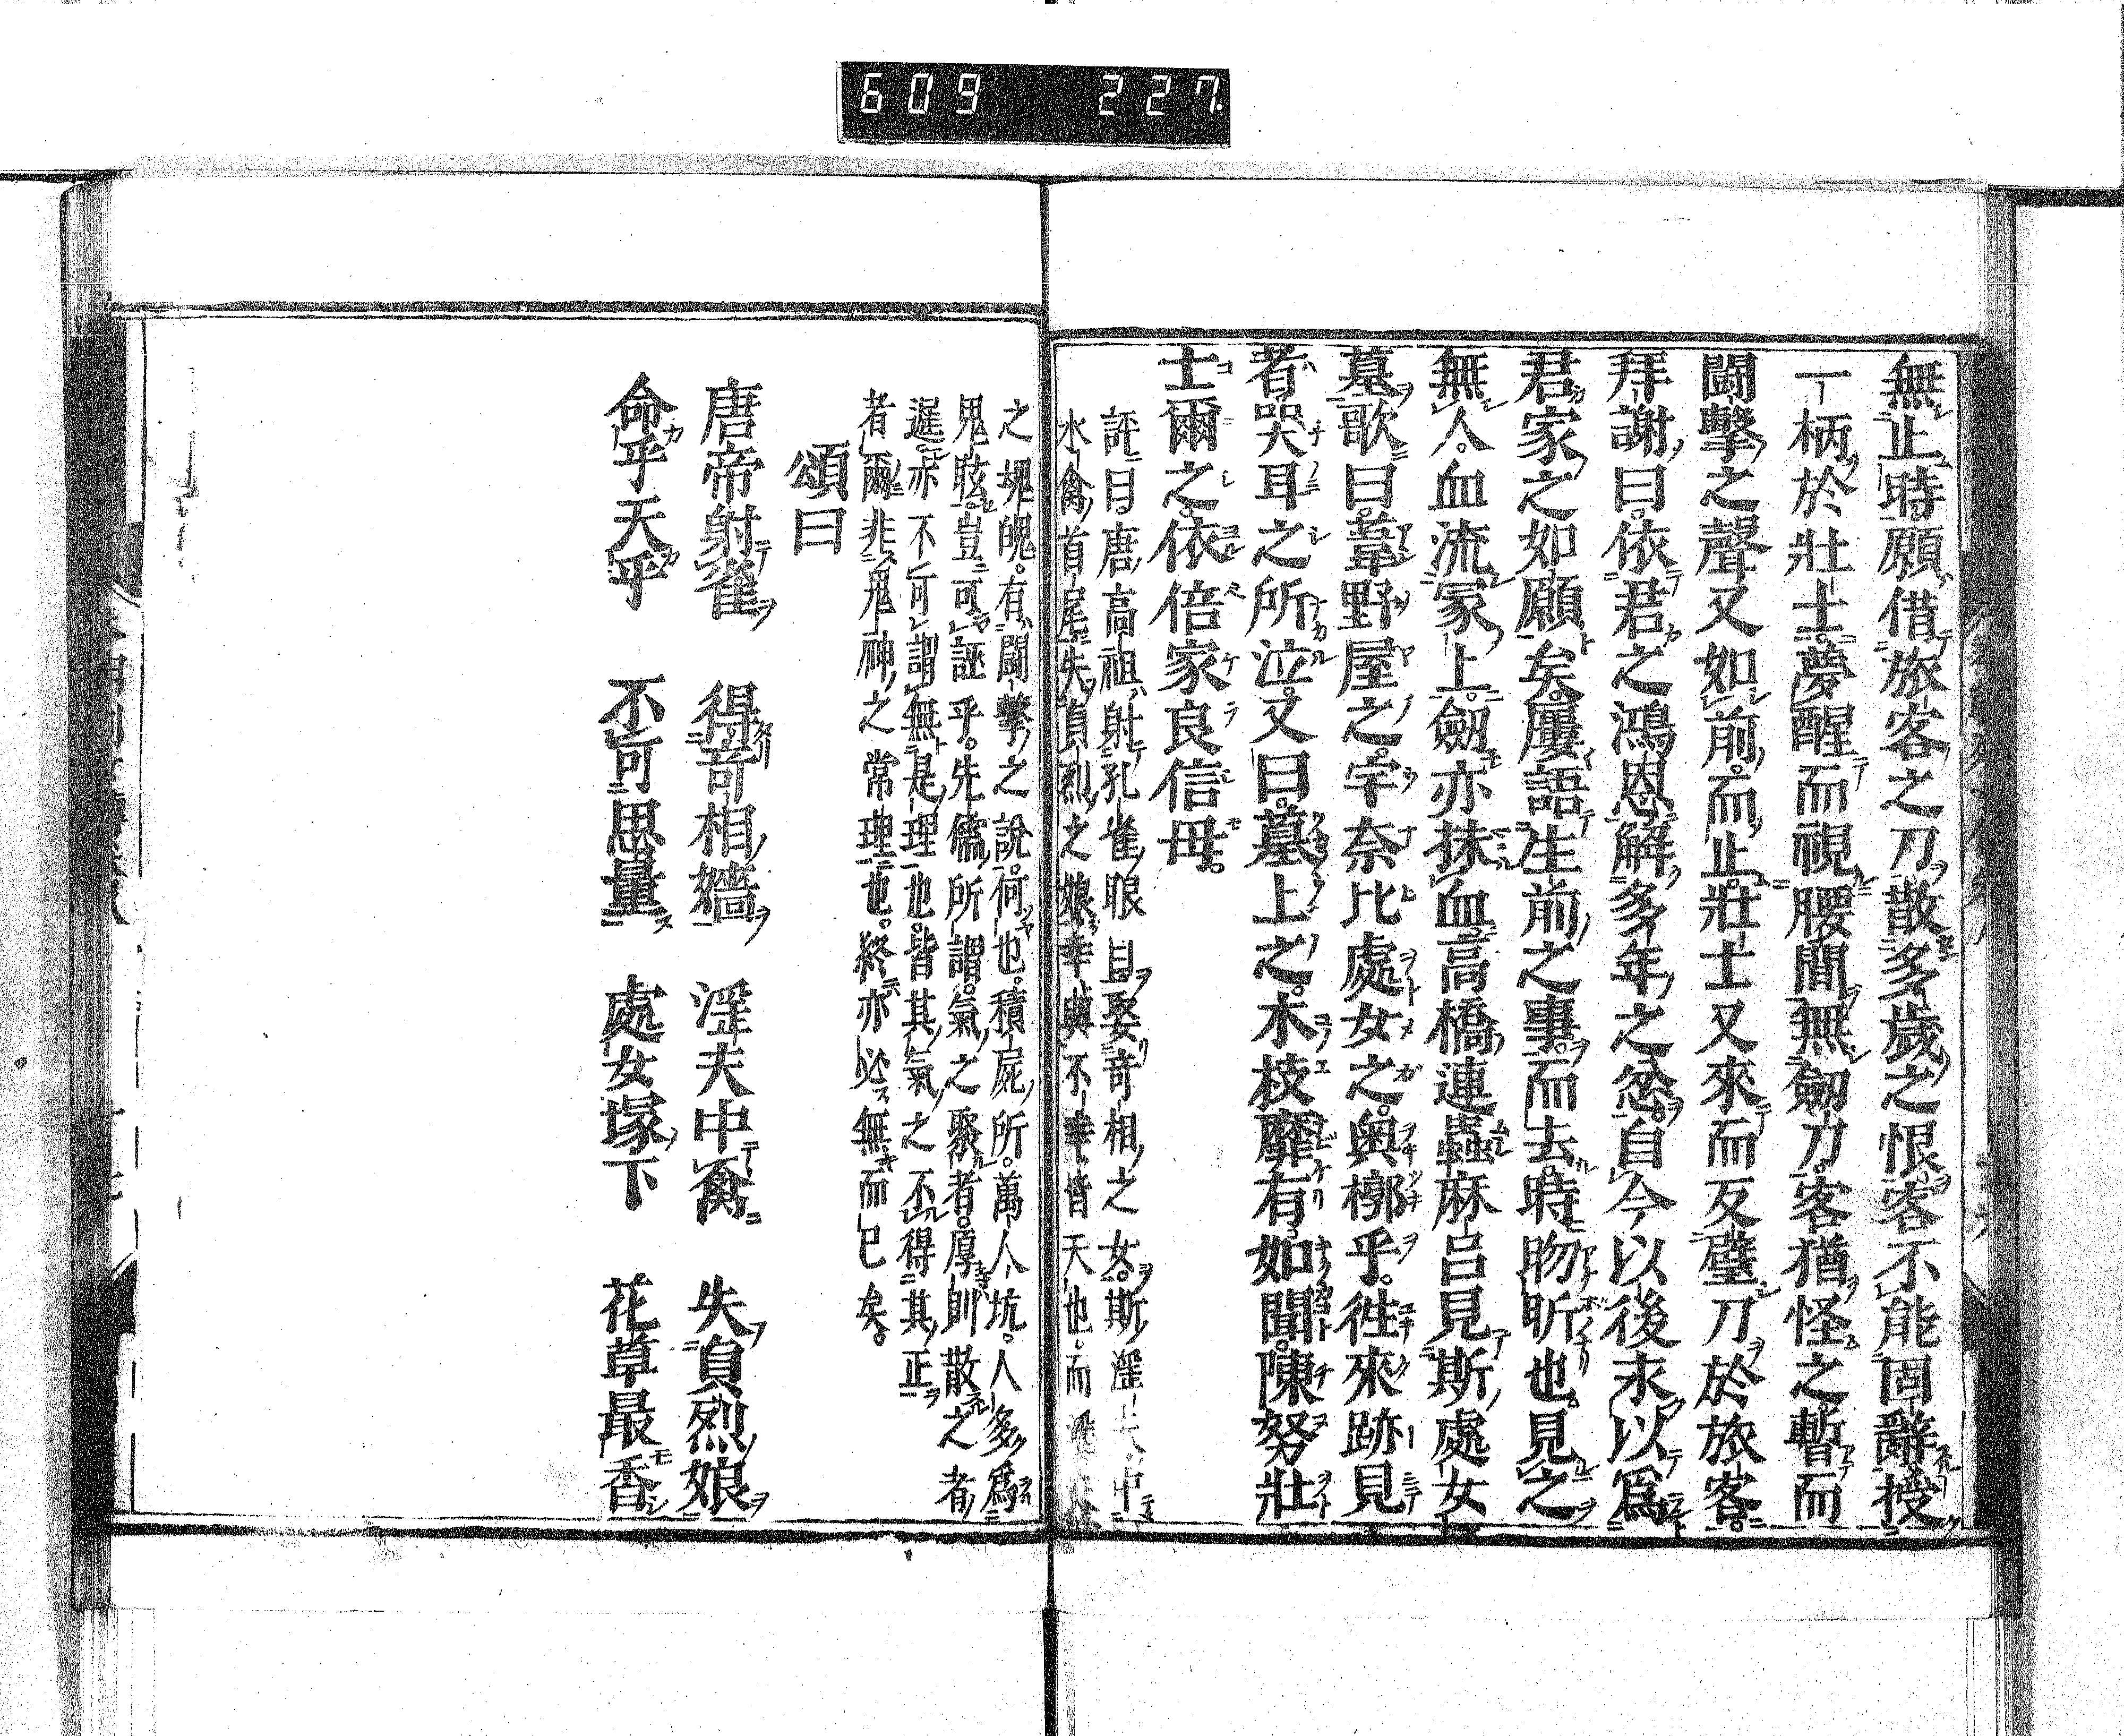 609 227.
無止時願借旅客之刀散多歲之恨客不能固辭授
一柄於壯士夢醒而視腰間無劔刀客猶怪之暫而
鬪擊之聲又如前而止壯士又來而反璧刀於旅客
拜謝曰依君之鴻恩解多年之忿自今以後末以爲
君家之如願矣屢語生前之事而去時昒昕也見之
無人血流冢上劔亦抹血高橋連蟲麻呂見斯處女
墓歌曰葦野屋之宇奈比處女之奥槨乎徃來跡見
者哭耳之所泣又曰墓上之木枝靡有如聞陳努壯
士爾之依倍家良信母
評曰唐高祖射孔雀眼目娶奇相之女斯淫夫中
水禽首尾失貞烈之娘幸與不幸皆天也而
之塊魄有鬪擊之說何也積屍所萬人坑人多爲
鬼眩豈可誣乎先儒所謂氣之聚者厚則散之者
遲亦不可謂無是理也皆其氣之不得其正
者爾非鬼神之常理也終亦必無而已矣
頌曰
唐帝射雀 得奇相嬙 淫夫中禽 失貞烈娘
命乎天乎 不可思量 處女塚下 花草最香